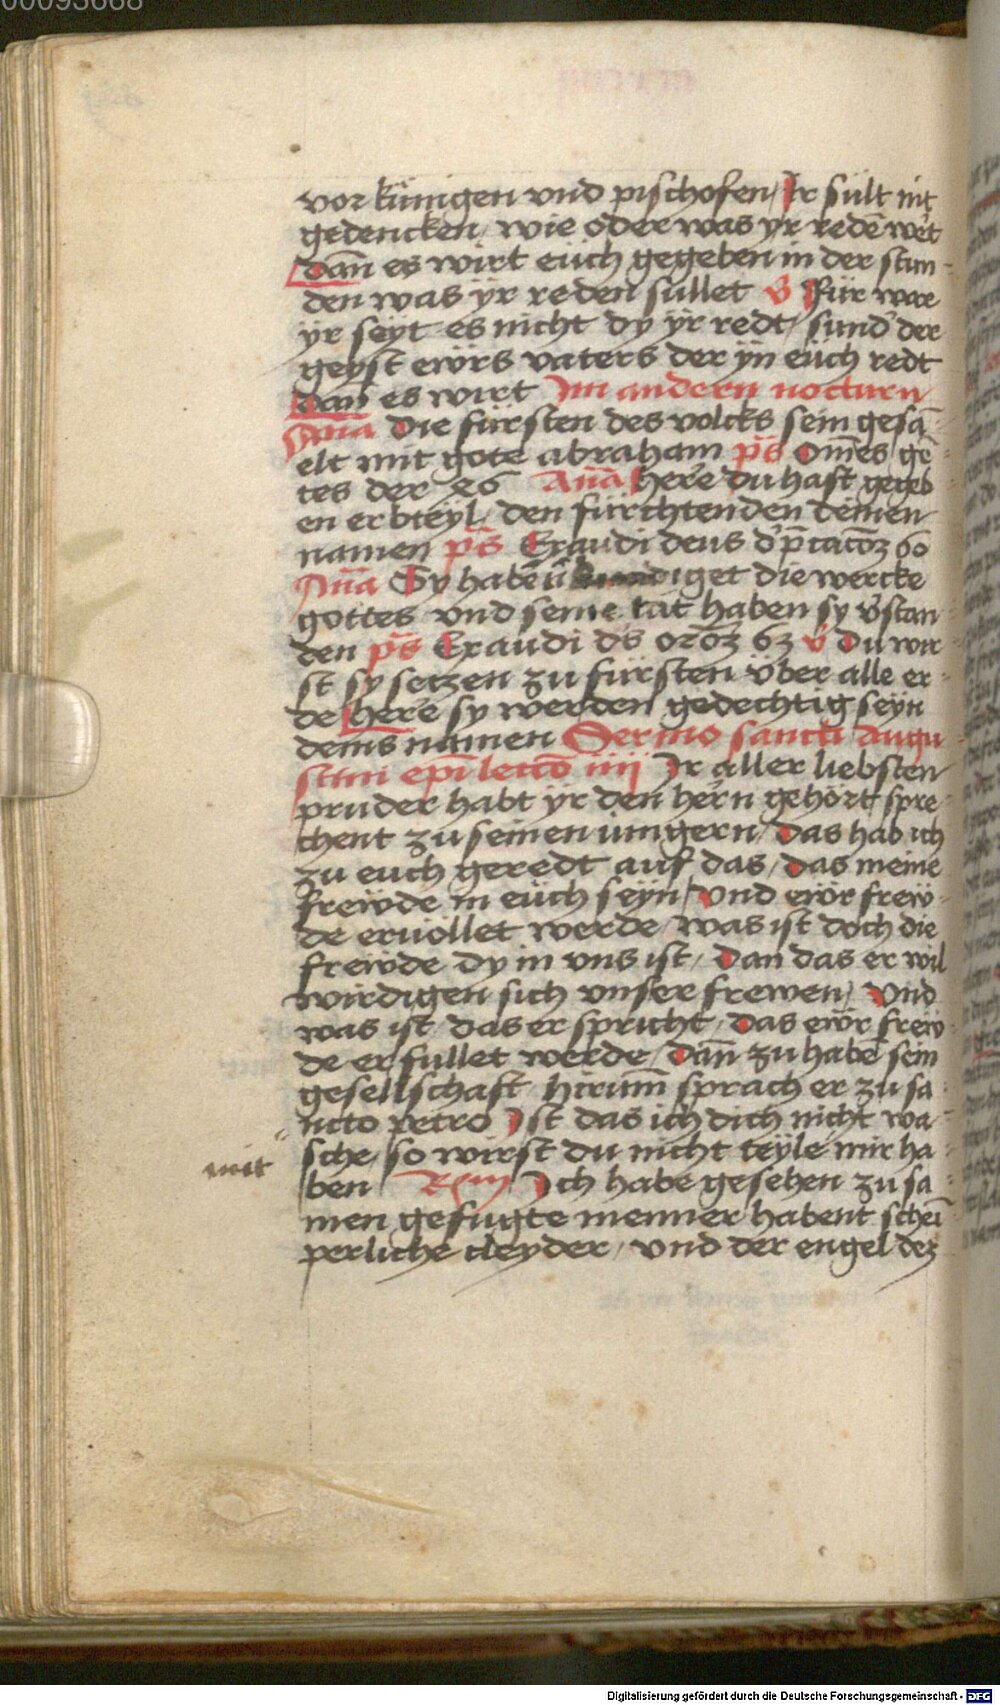 00093668
vor künigen vnd pischofen, Ir sült nit
gedencken, wie oder was yr redē wet
Dan̄ es wirt eüch gegeben in der stun
den was ÿr reden sullet v̾ Für war
yr seÿt es nicht dy ÿr redt, sund' der
geyst ewrs vaters der ÿn eüch redt
Dan̄ es wirt Im andern nocturn
An̄a Die fürsten des volcks sein gesā
elt mit gote abraham ps̄ Om̄es gē
tes der 46 An̄a Here du hast gegeb
en erbteÿl, den fürchtenden deinen
namen ps̄ Exaudi deus d'p̄catōꝫ 60
An̄a Sy habē diget die wercke
gottes vnd seine tat haben sy v'stan
den ps̄ Exaudi ds̄ orōꝫ 63 v̾ Du wir
st sy setzen zu fürsten über alle er
de Here sy werden gedechtig seÿn
deins namen Sermo sancti Augu
stini ep̄i lectō iiij Ir aller liebsten
pruder habt ÿr den hern gehört spre
chent zu seinen iungern, das hab ich
zu euch geredt auf das, das meine
freẅde in eüch seÿn, Vnd ewr freẅ
de eruöllet werde, Was ist doch die
freẅde dy in vns ist, Dan das er wil
wirdigen sich vnser frewen, Vnd
was ist, das er spricht, Das ewr freẅ
de erfullet werde, Dan̄ zu habē sein
gesellschaft, hirum̄ sprach er zu sa
ncto petro Ist das ich dich nicht wa
sche, so wirst du nicht teÿle mir ha
mit
ben Rm̄ Ich habe gesehen zu sa
men gefugte menner habent schei
perliche cleyder, vnd der engel deꝫ
Digitalisierung gefördert durch die Deutsche Forschungsgemeinschaft - DFG